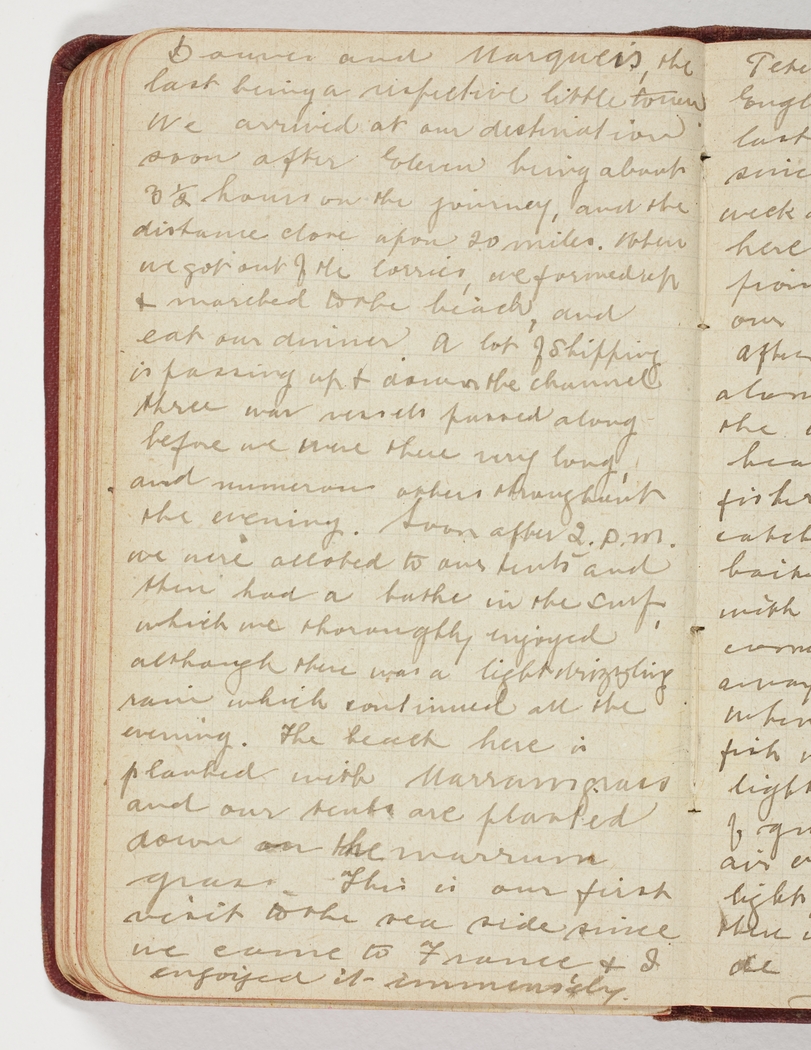 and Marqueis, the
last being a respective little town
We arrived at our destination
soon after Eleven being about
3 ½ hours on the journey, and the
distance close upon 20 miles. When
we got out of the lorries, we formed up
& marched to the beach, and
eat our dinner A lot of Shipping
is passing up & down the channel
three war vessels passed along
before we were there very long,
and numerous others throughout
the evening. Soon after 2. p.m.
we were alloted to our tents and
then had a bathe in the surf,
which we thoroughly enjoyed
although there was a light drizzling
rain which continued all the
evening. The beach here is
planted with Marram grass
and our tents are planted
down on the marrum
grass. This is our first
visit to the sea side since
we came to France & I
enjoyed it immensely.
Pete
Engl
last
sinc
week
here
from
our
after
alon
the
hea
fisher
catch
bait
with
away
when
fish
light
of gr
air
lights
there